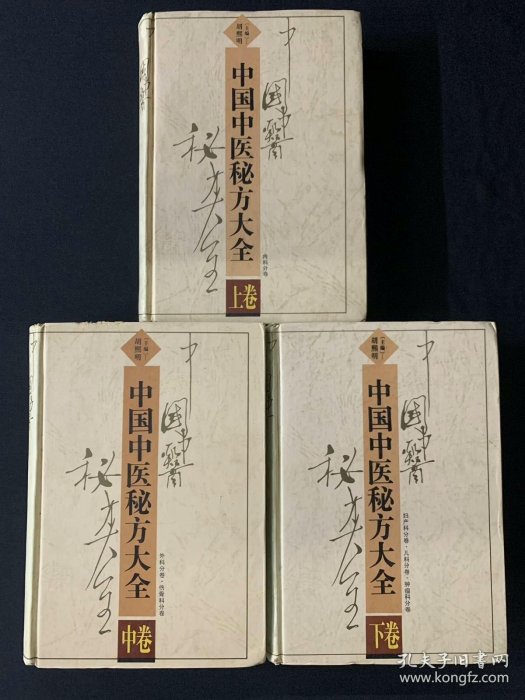 主编
胡熙明
中国中医秘方大全
上卷
内科分卷
中国中医
秘方大全
主编
胡熙明
中国中医秘方大全
中卷
外科分卷·伤骨科分卷
中国中医
秘方大全
主编
胡熙明
中国中医秘方大全
下卷
妇产科分卷·儿科分卷·肿瘤科分卷
孔夫子旧书网
www.kongfz.com